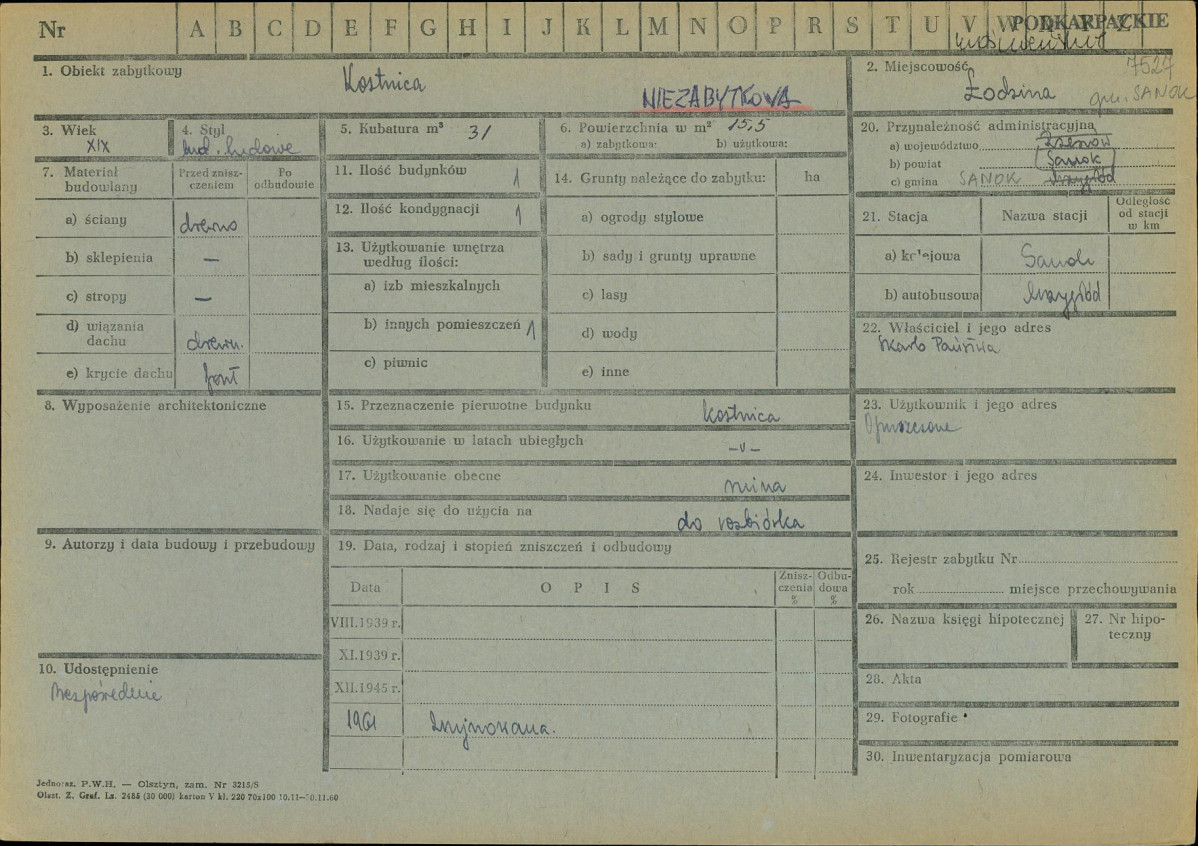 Nr A B C D E F G H I J K L M N O P R S T U V W PODKARPACKIE
7527
1. Obiekt zabytkowy
Kostnica
NIEZABYTKOWA
2. Miejscowość
Łodzina
gm. SANOK
3. Wiek
XIX
4. Styl
bud. ludowe
5. Kubatura m³ 31
6. Powierzchnia w m² 15,5
a) zabytkowa: b) użytkowa:
20. Przynależność administracyjna
a) województwo Rzeszów
b) powiat Sanok
c) gmina SANOK Mrzygłód
7. Materiał budowiany
Przed zniszczeniem
Po odbudowie
a) ściany drewno
b) sklepienia —
c) stropy —
d) wiązania dachu drewn.
e) krycie dachu gont
11. Ilość budynków 1
12. Ilość kondygnacji 1
13. Użytkowanie wnętrza według ilości:
a) izb mieszkalnych
b) innych pomieszczeń 1
c) piwnic
14. Grunty należące do zabytku: ha
a) ogrody stylowe
b) sady i grunty uprawne
c) lasy
d) wody
e) inne
21. Stacja Nazwa stacji Odległość od stacji w km
a) kolejowa Sanok
b) autobusowa Mrzygłód
22. Właściciel i jego adres
Skarb Państwa
8. Wyposażenie architektoniczne
15. Przeznaczenie pierwotne budynku kostnica
16. Użytkowanie w latach ubiegłych –"–
17. Użytkowanie obecne ruina
18. Nadaje się do użycia na do rozbiórka
23. Użytkownik i jego adres
Opuszczone
24. Inwestor i jego adres
9. Autorzy i data budowy i przebudowy
19. Data, rodzaj i stopień zniszczeń i odbudowy
Data O P I S Zniszczenia % Odbudowa %
VIII.1939 r.
XI.1939 r.
XII.1945 r.
1961 Zrujnowana.
25. Rejestr zabytku Nr
rok miejsce przechowywania
26. Nazwa księgi hipotecznej
27. Nr hipoteczny
10. Udostępnienie
Bezpośrednie
28. Akta
29. Fotografie
30. Inwentaryzacja pomiarowa
Jednoraz. P.W.H. — Olsztyn, zam. Nr 3215/S
Olszt. Z. Graf. Lz. 2485 (30 000) karton V kl. 220 70x100